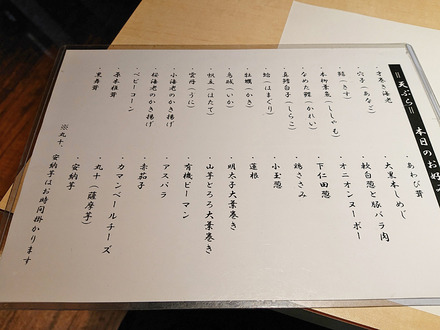 〓天ぷら〓 本日のお好
・才巻き海老
・穴子(あなご)
・鱚(きす)
・本柳葉魚(ししゃも)
・なめた鰈(かれい)
・真鱈白子(しらこ)
・蛤(はまぐり)
・牡蠣(かき)
・烏賊(いか)
・帆立(ほたて)
・雲丹(うに)
・小海老のかき揚げ
・桜海老のかき揚げ
・ベビーコーン
・原木椎茸
・黒舞茸
・あわび茸
・大黒本しめじ
・軟白葱と豚バラ肉
・オニオンヌーボー
・下仁田葱
・鶏ささみ
・小玉葱
・蓮根
・明太子大葉巻き
・山芋とろろ大葉巻き
・有機ピーマン
・アスパラ
・赤茄子
・カマンベールチーズ
・丸十(薩摩芋)
・安納芋
※丸十、安納芋はお時間掛かります